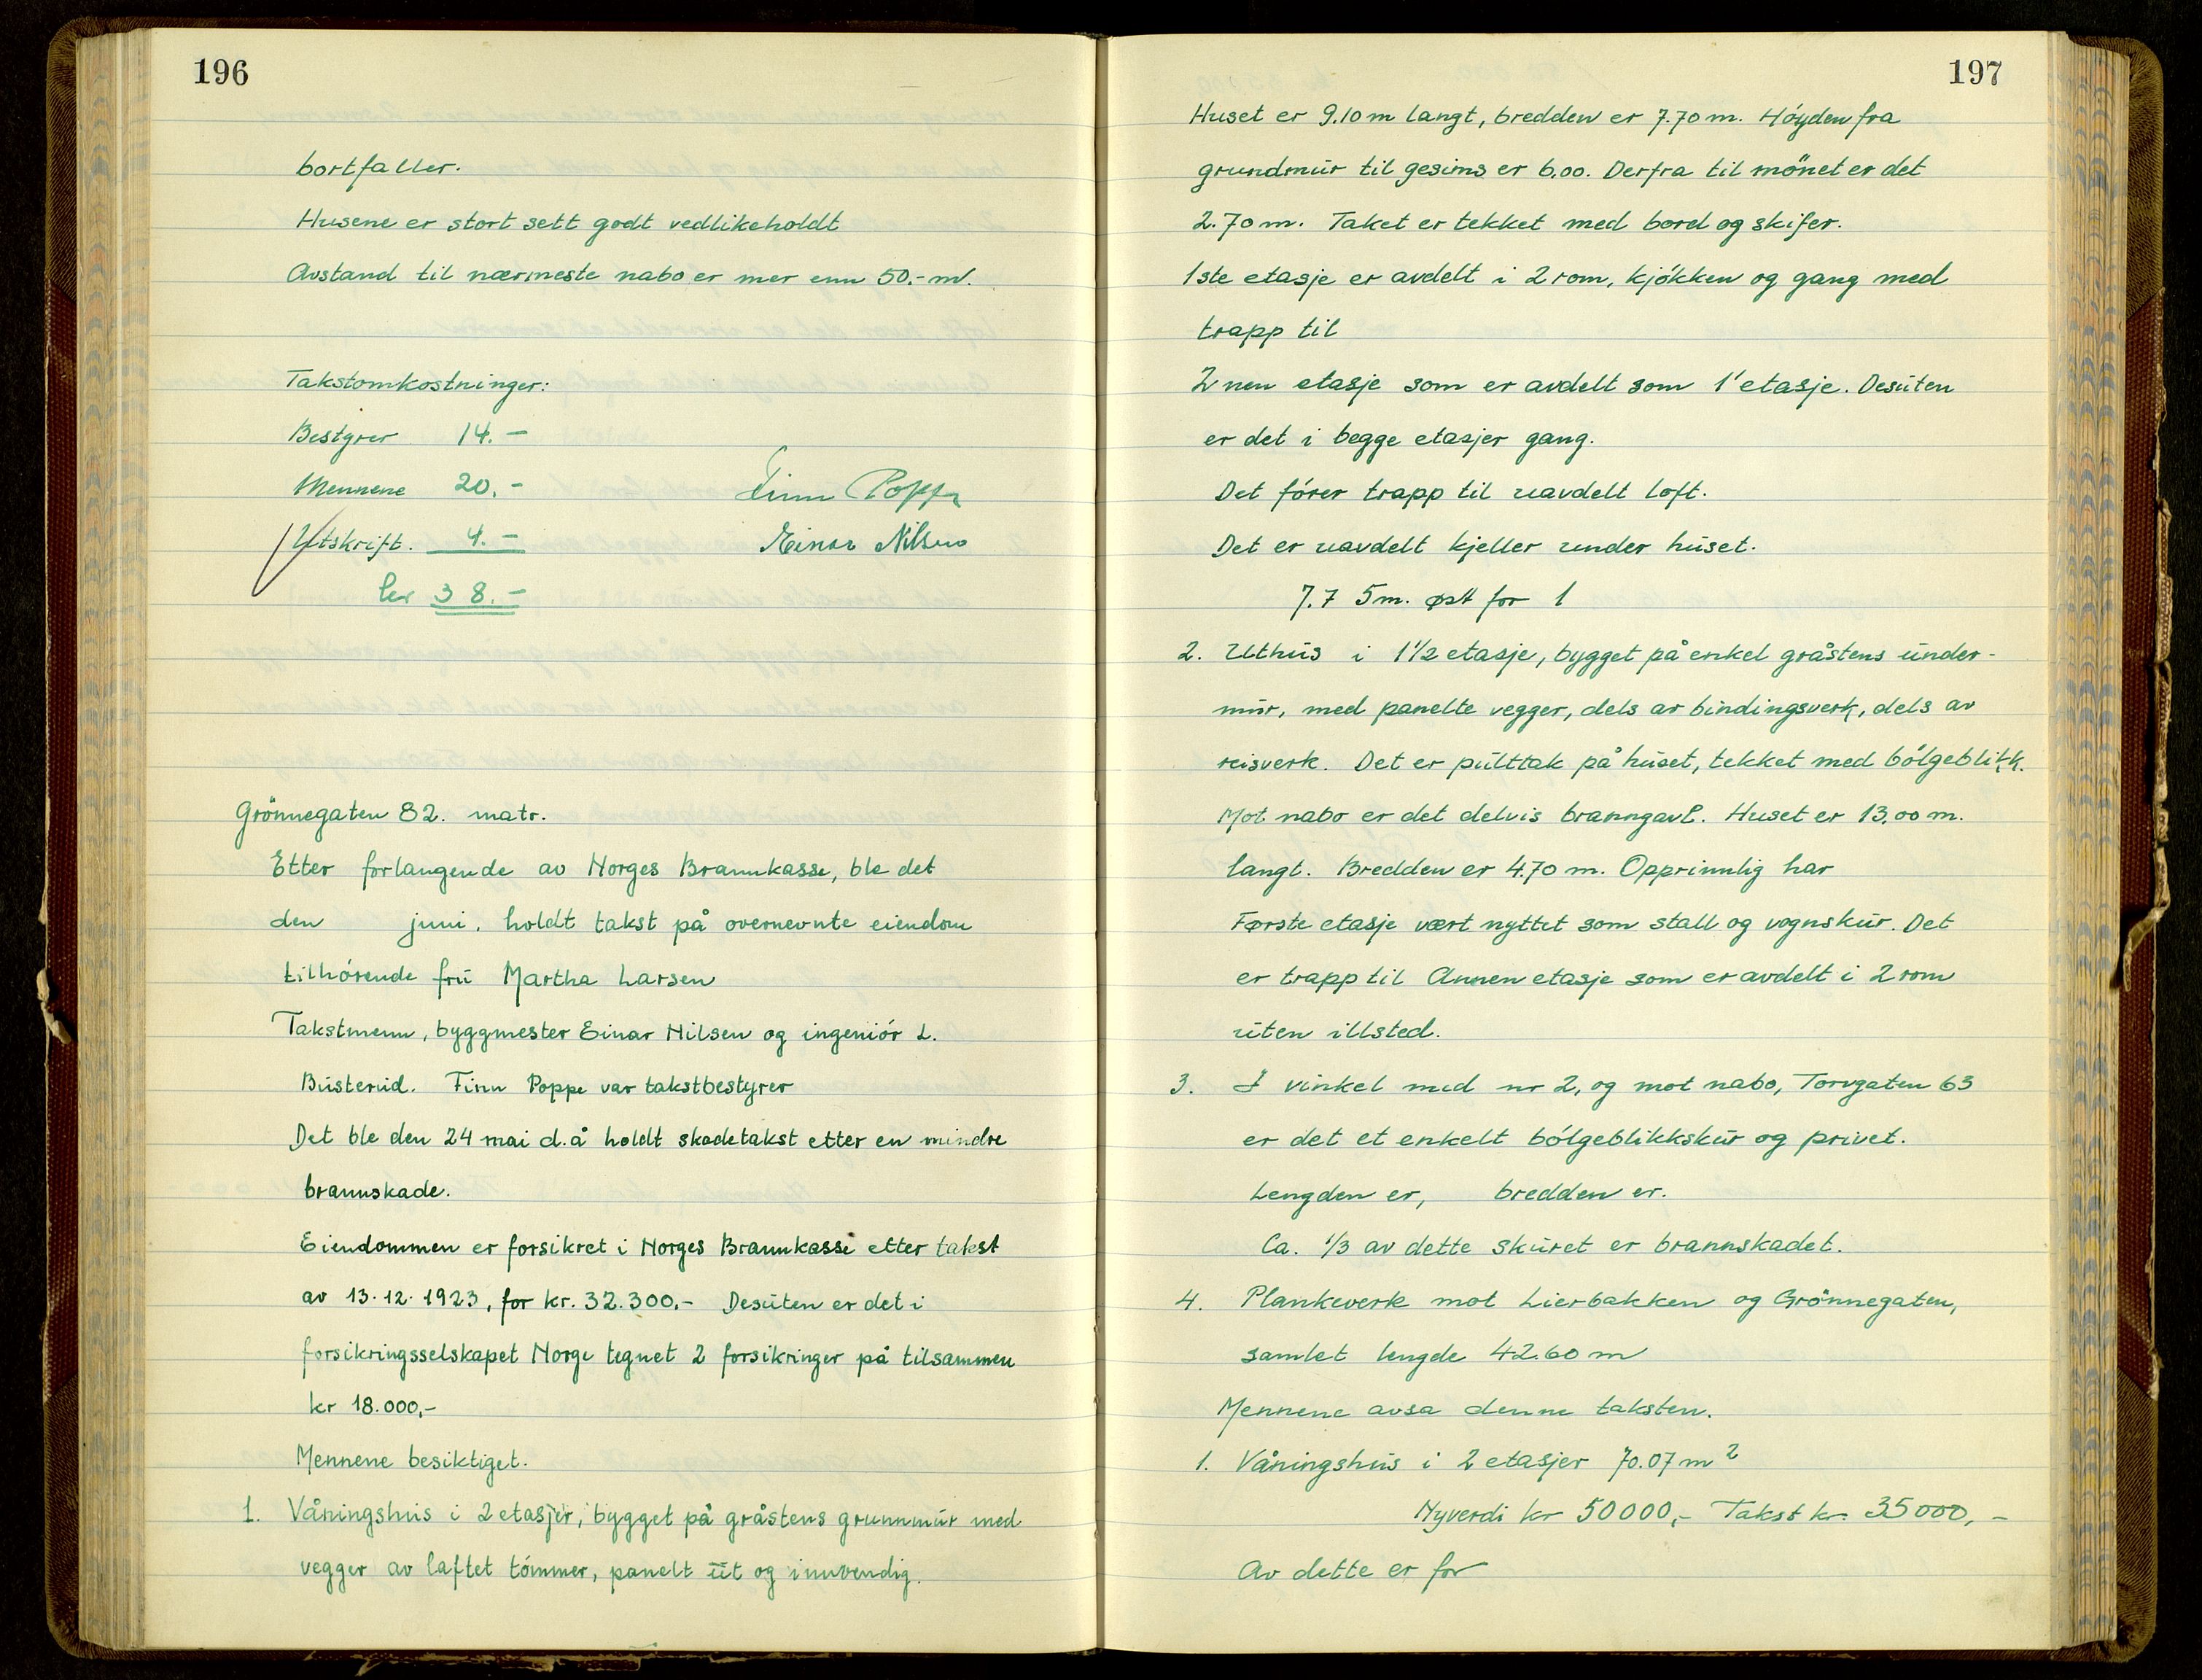 196
bortfaller.
Husene er stort sett godt vedlikeholdt
Avstand til nærmeste nabo er mer enn 50.- m.
Takstomkostninger:
Bestyrer 14. -
Mennene 20. -
Finn Poppe
Utskrift. 4. -
Einar Nilsen
kr 38. -
Grönnegaten 82. matr.
Etter forlangende av Norges Brannkasse, ble det
den juni. holdt takst på overnevnte eiendom
tilhörende frü Martha Larsen
Takstmenn, byggmester Einar Nilsen og ingeniör L.
Büsterud. Finn Poppe var takstbestyrer
Det ble den 24 mai d.å holdt skadetakst etter en mindre
brannskade.
Eiendommen er forsikret i Norges Brannkasse etter takst
av 13.12.1923, for kr. 32.300,- Desüten er det i
forsikringsselskapet Norge tegnet 2 forsikringer på tilsammen
kr 18.000,-
Mennene besiktiget.
1. Våningshus i 2 etasjer, bygget på gråstens grunnmür med
vegger av laftet tömmer, panelt üt og innvendig.
197
Huset er 9.10 m langt, bredden er 7.70 m. Höyden fra
grundmür til gesims er 6,00. Derfra til mönet er det
2.70 m. Taket er tekket med bord og skifer.
1ste etasje er avdelt i 2 rom, kjökken og gang med
trapp til
2nen etasje som er avdelt som 1' etasje. Desüten
er det i begge etasjer gang.
Det förer trapp til uavdelt loft.
Det er uavdelt kjeller under hüset.
7.75m. øst for 1
2. Uthüs i 1 1/2 etasje, bygget på enkel gråstens ünder-
mür, med panelte vegger, dels av bindingsverk, dels av
reisverk. Det er pülttak på hüset, tekket med bölgeblikk.
Mot nabo er det delvis branngavl. Huset er 13,00 m.
langt. Bredden er 4.70 m. Opprinnlig har
Første etasje vært nyttet som stall og vognskür. Det
er trapp til Annen etasje som er avdelt i 2 rom
üten illsted.
3. I vinkel med nr 2, og mot nabo, Torvgaten 63
er det et enkelt bölgeblikkskür og privet.
Lengden er, bredden er.
Ca. 1/3 av dette sküret er brannskadet.
4. Plankeverk mot Lierbakken og Grönnegaten,
samlet lengde 42.60 m
Mennene avsa denne taksten.
1. Våningshüs i 2 etasjer 70.07 m2
Nyverdi kr 50000,- Takst kr. 35000, -
Av dette er for